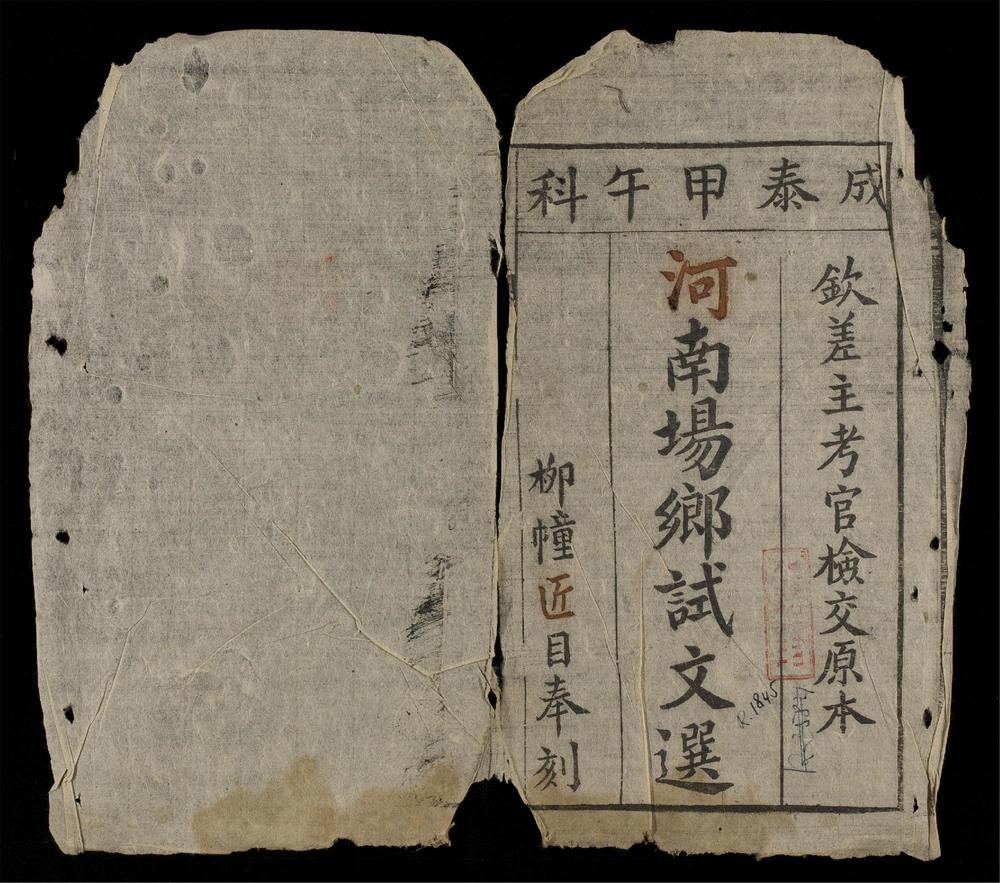 成泰甲午科
欽差主考官檢交原本
河南場鄉試文選
柳幢近目奉刻
R.1845